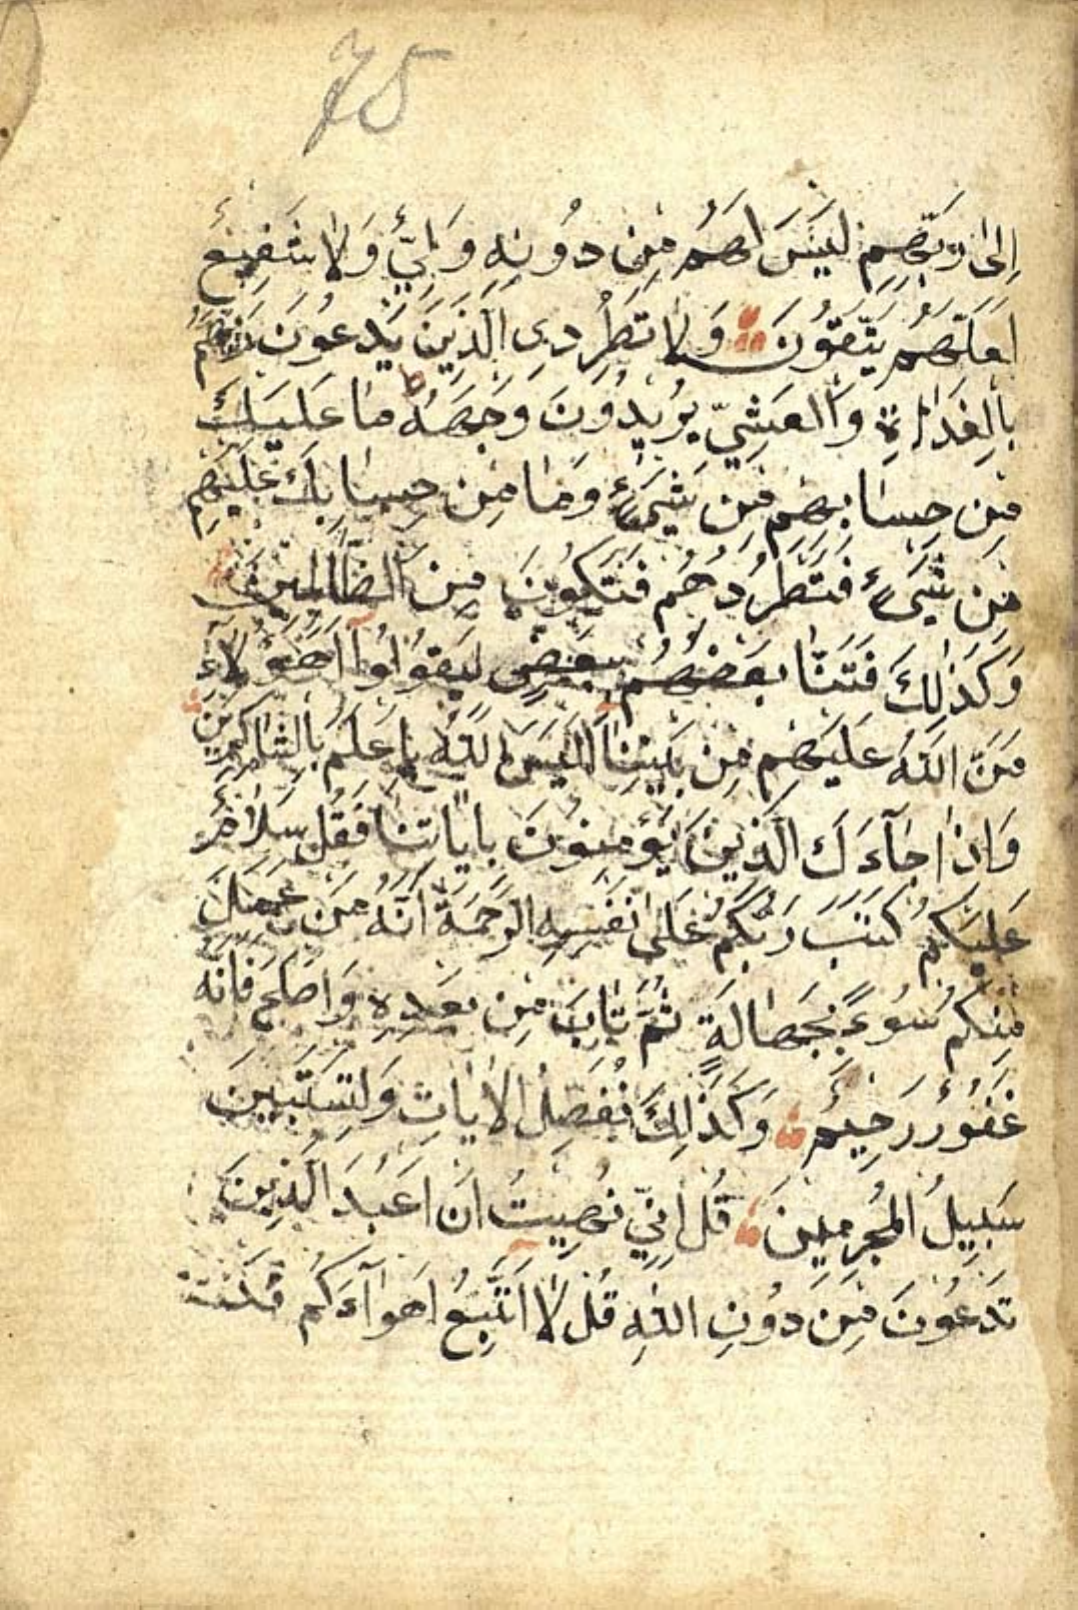 75
اِلىٰ رَبِّهِم لَيسَ لَهُم مِن دُونِهِ وَلِيٌّ وَلاٰ شَفِيعٌ
لَعَلَّهُم يَتَّقُونَ وَلاٰ تَطرُدِ الَّذِينَ يَدعُونَ رَبَّهُم
بِالغَدٰاةِ وَالعَشِيِّ يُرِيدُونَ وَجهَهُ مٰا عَلَيكَ
مِن حِسٰابِهِم مِن شَيءٍ وَمٰا مِن حِسٰابِكَ عَلَيهِم
مِن شَيءٍ فَتَطرُدَهُم فَتَكُونَ مِنَ الظّٰالِمِينَ
وَكَذٰلِكَ فَتَنّٰا بَعضَهُم بِبَعضٍ لِيَقُولُوا اَهٰؤُلاٰءِ
مَنَّ اللهُ عَلَيهِم مِن بَينِنٰا اَلَيسَ اللهُ بِاَعلَمَ بِالشّٰاكِرِينَ
وَاِذٰا جٰآءَكَ الَّذِينَ يُؤمِنُونَ بِاٰيٰاتِنٰا فَقُل سَلاٰمٌ
عَلَيكُم كَتَبَ رَبُّكُم عَلىٰ نَفسِهِ الرَّحمَةَ اَنَّهُ مَن عَمِلَ
مِنكُم سُوءً بِجَهٰالَةٍ ثُمَّ تٰابَ مِن بَعدِهِ وَاَصلَحَ فَاَنَّهُ
غَفُورٌ رَحِيمٌ وَكَذٰلِكَ نُفَصِّلُ الاٰيٰاتِ وَلِتَستَبِينَ
سَبِيلُ المُجرِمِينَ قُل اِنِّي نُهِيتُ اَن اَعبُدَ الَّذِينَ
تَدعُونَ مِن دُونِ اللهِ قُل لاٰ اَتَّبِعُ اَهوٰآءَكُم